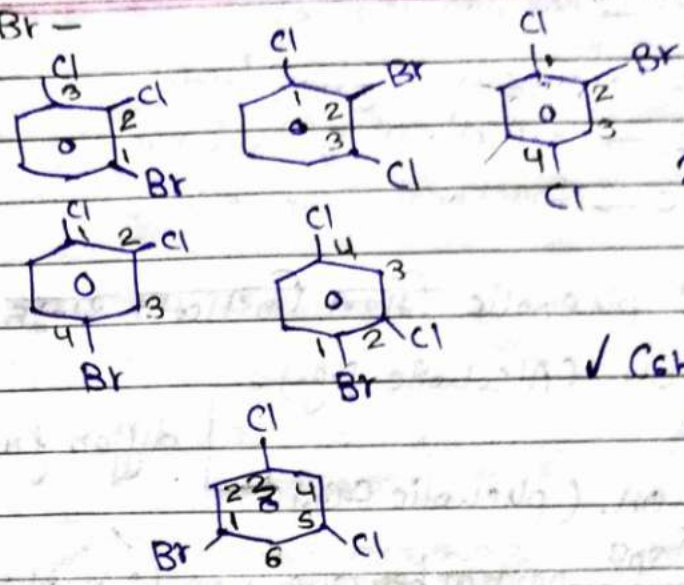 Br -
Cl
3
Cl
2
1
Br
Cl
1
Br
2
3
Cl
Cl
1
Br
2
3
4
Cl
Cl
1
2
Cl
3
4
Br
Cl
4
3
2
Cl
1
Br
✓ C6H
Cl
2
4
1
5
Br
6
Cl